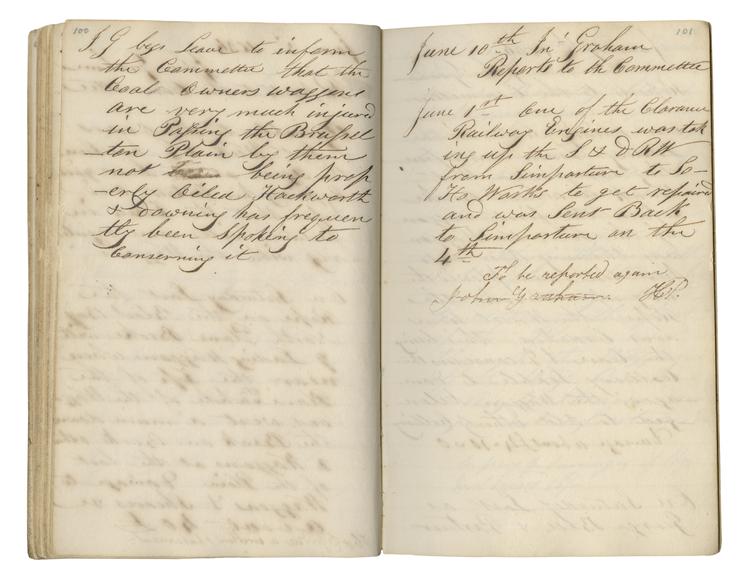 100
J G begs Leave to inform
the Committee that the
Coal Owners waggons
are very much injured
in Passing the Brussel
ton Plain by them
not being prop
erly Oiled Hackworth
& Downing has frequen
tly been Spoking to
Conserning it
101
June 10th Jn Graham
Reports to th Committee
June 1st One of the Clarance
Railway Engines was tak
ing up the S & D RW
from Simpasture to So
Ho Works to get repaired
and was Sent Back
to Simpasture on the
4th
To be reported again
John Graham H.P.